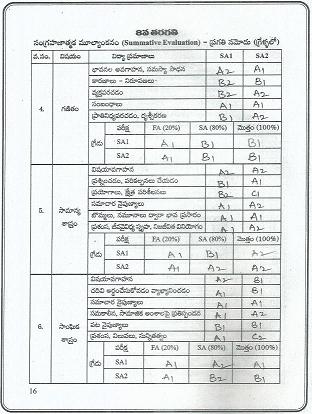 8వ తరగతి
సంగ్రహణాత్మక మూల్యాంకనం (Summative Evaluation) – ప్రగతి నమోదు (గ్రేళ్ళలో)
వ.సం. విషయం విద్యా ప్రమాణాలు SA1 SA2
4. గణితం
భావనల అవగాహన, సమస్యా సాధన A2 A1
కారణాలు – నిరూపణలు B2 B2
వ్యక్తపరచడం A2 B1
సంబంధాలు A1 A1
ప్రాతినిధ్యపరచడం, దృశ్యీకరణ A1 B1
గ్రేడు పరీక్ష FA (20%) SA (80%) మొత్తం (100%)
SA1 A1 B1 B1
SA2 A1 B1 B1
5. సామాన్య శాస్త్రం
విషయావగాహన A2 A2
ప్రశ్నించడం, పరికల్పనలు చేయడం B1 A1
ప్రయోగాలు, క్షేత్ర పరిశీలనలు B2 C1
సమాచార నైపుణ్యాలు A1 A2
బొమ్మలు, నమూనాల ద్వారా భావ ప్రసారం A1 A1
ప్రశంస, జీవవైవిధ్య స్పృహ, నిజజీవిత వినియోగం A1 A2
గ్రేడు పరీక్ష FA (20%) SA (80%) మొత్తం (100%)
SA1 A1 A2 A1
SA2 A1 A2 A2
6. సాంఘిక శాస్త్రం
విషయావగాహన A2 B1
చదివి అర్థంచేసుకోవడం వ్యాఖ్యానించడం A1 B1
సమాచార నైపుణ్యాలు A1 A1
సమకాలీన, సామాజిక అంశాలపై ప్రతిస్పందన A1 A2
పట నైపుణ్యాలు B1 B1
ప్రశంస, విలువలు, సున్నితత్వం A1 C2
గ్రేడు పరీక్ష FA (20%) SA (80%) మొత్తం (100%)
SA1 A1 A1 A1
SA2 A1 B2 B1
16